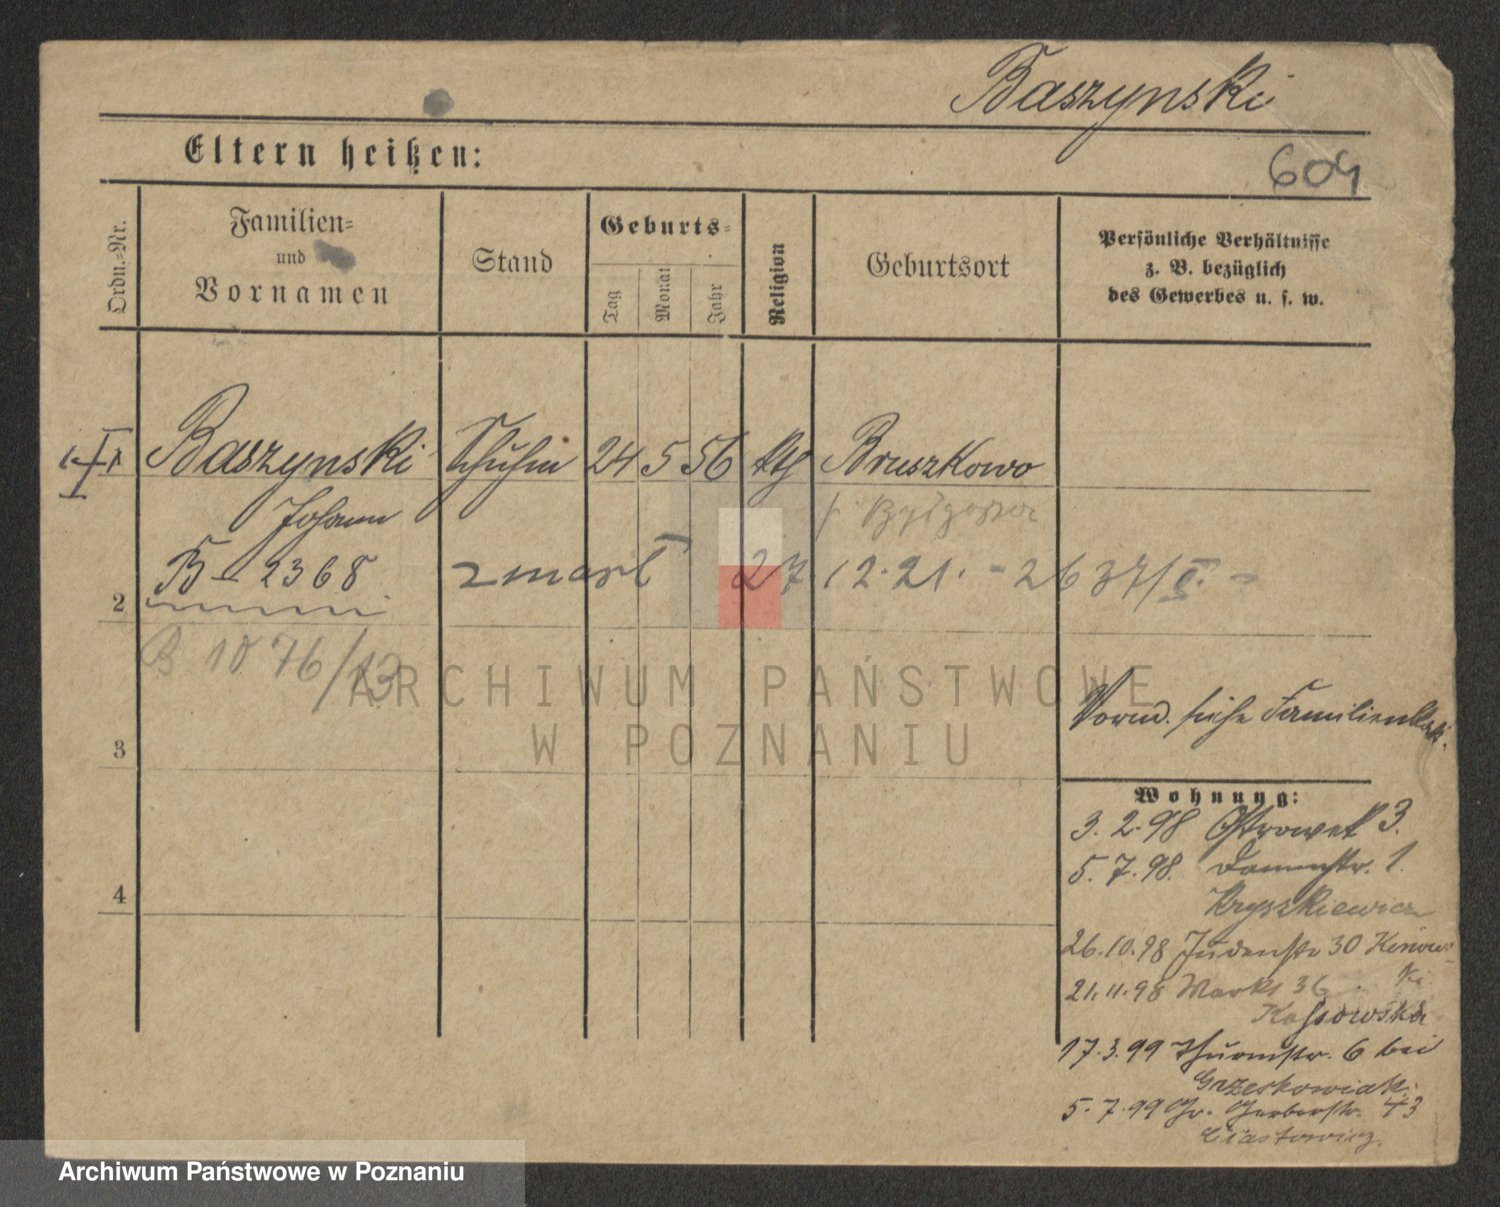 Baszynski
604
Eltern heißen:
Ordn.-Nr.
Familien=
und
Vornamen
Stand
Geburts=
Tag
Monat
Jahr
Religion
Geburtsort
Persönliche Verhältnisse
z. B. bezüglich
des Gewerbes u. s. w.
Baszynski
24 5 56 kth Bruszkowo
Johann
B - 2368 zmarł 27 12. 21. - 2637/II. -
2
B 1076/13
ARCHIWUM PAŃSTWOWE
W POZNANIU
3
Wohnung:
3. 2. 98 Ostrowek 3.
5. 7. 98. Dammstr. 1.
Kryszkiewicz
4
26. 10. 98 Judenstr 30
21. 11. 98 Markt 36
Kossowska
17. 3. 99 Thurmstr. 6 bei
Grzeskowiak
5. 7. 99 Gr. Gerberstr. 43
Ciastowicz
Archiwum Państwowe w Poznaniu